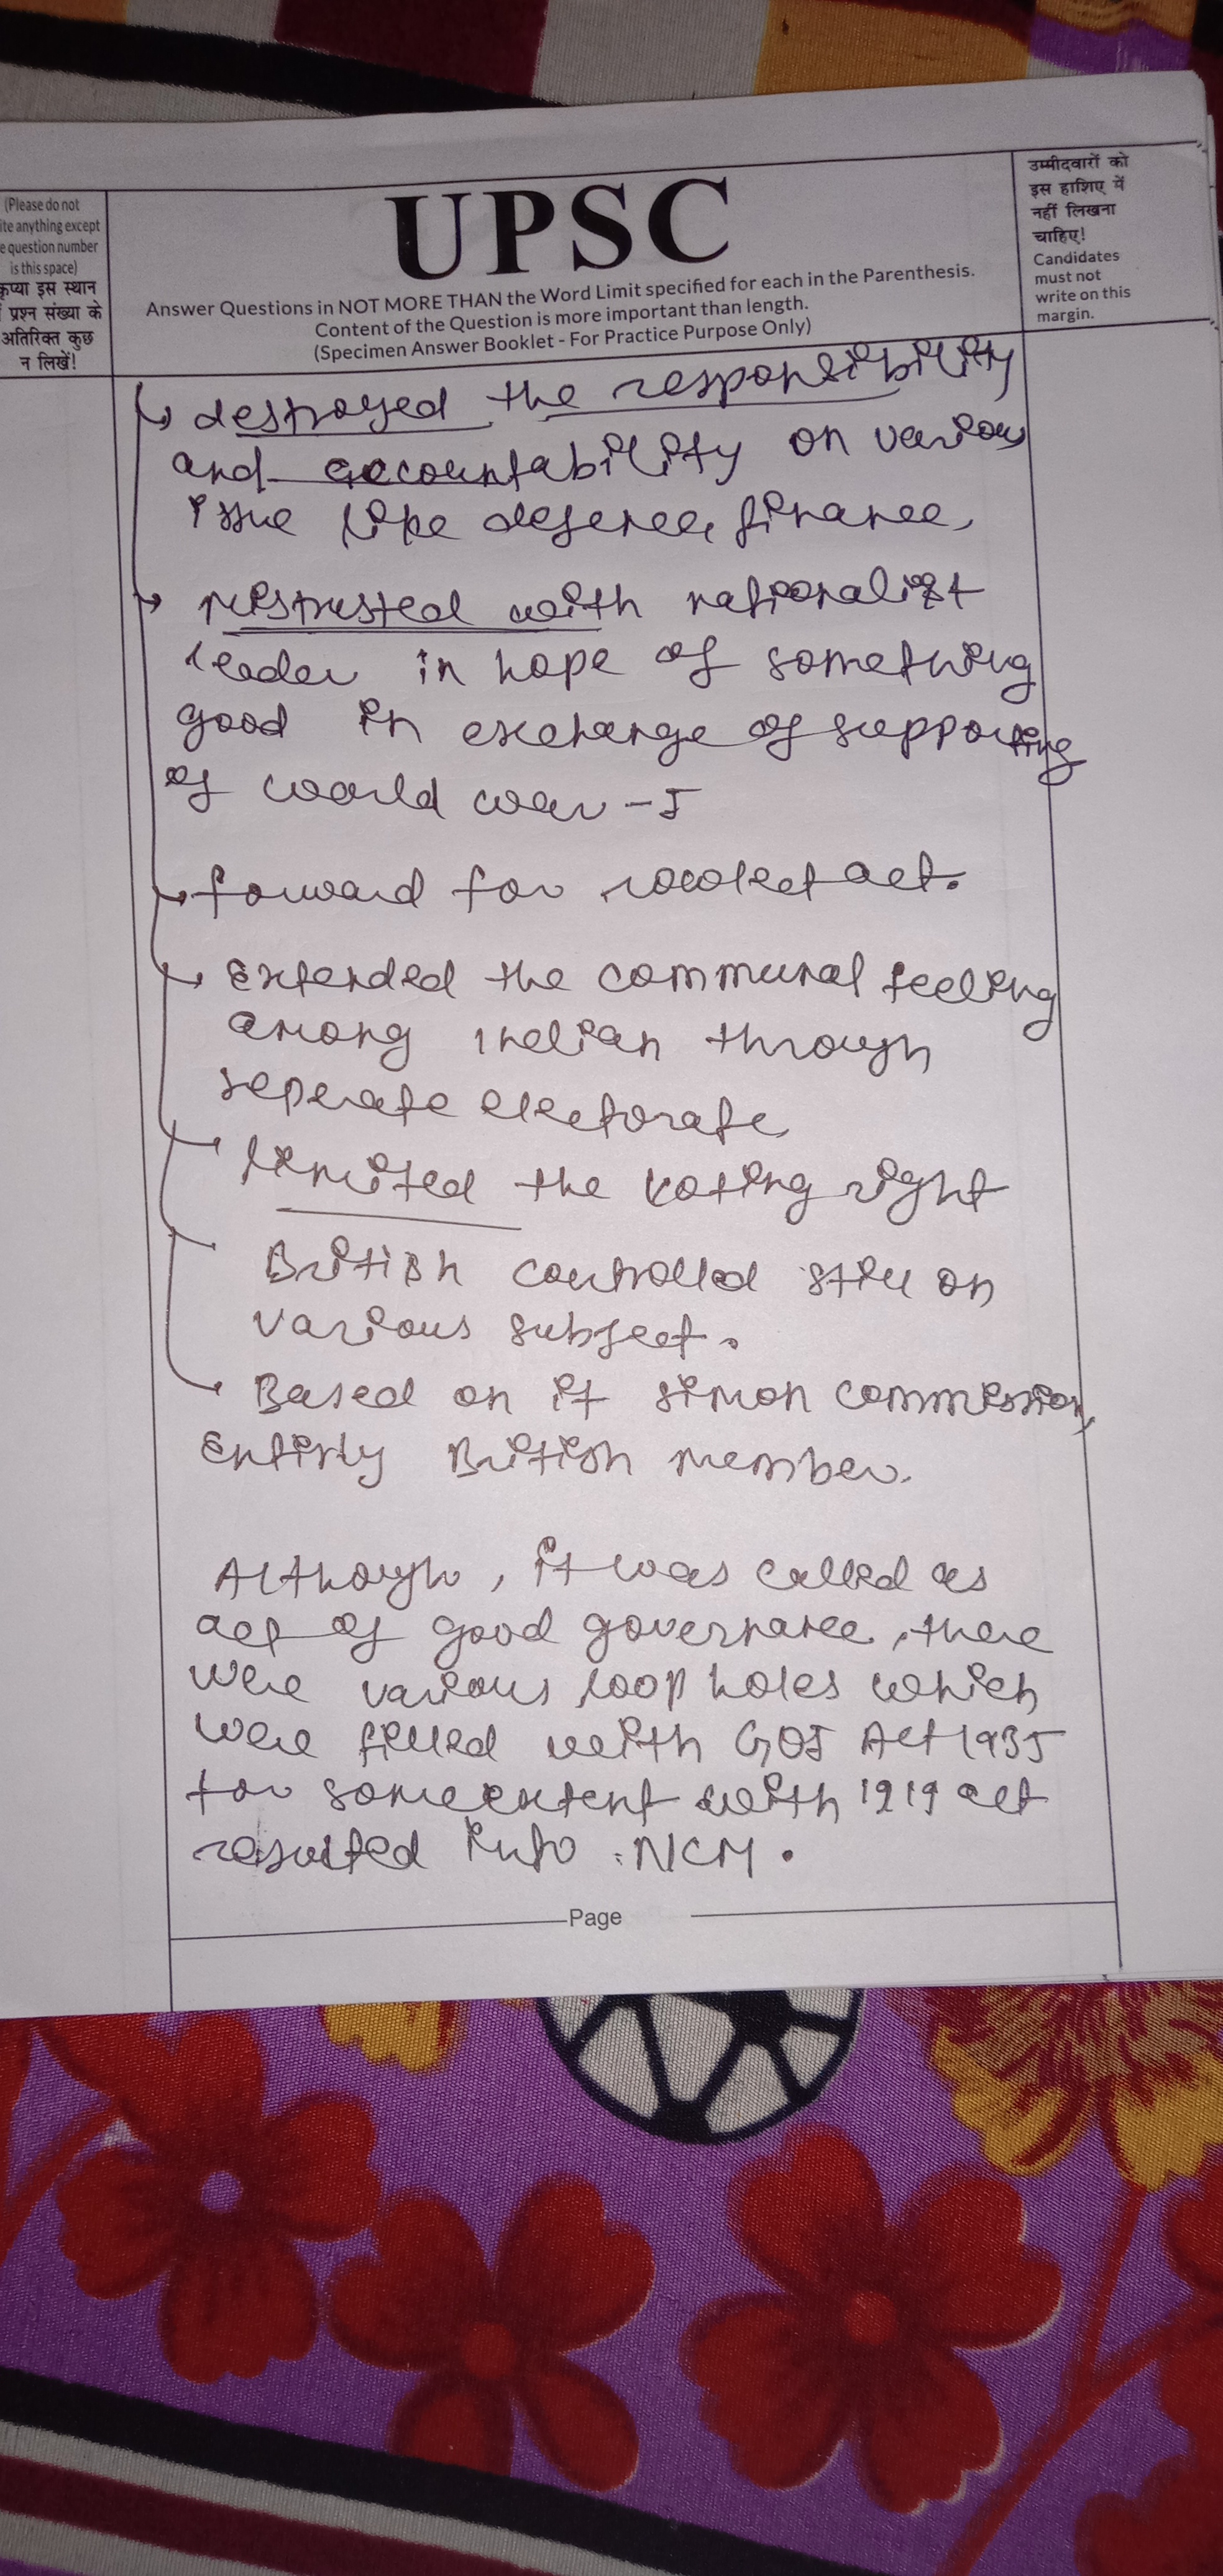 (Please do not
ite anything except
e question number
is this space)
कृप्या इस स्थान
प्रश्न संख्या के
अतिरिक्त कुछ
न लिखें!
UPSC
Answer Questions in NOT MORE THAN the Word Limit specified for each in the Parenthesis.
Content of the Question is more important than length.
(Specimen Answer Booklet - For Practice Purpose Only)
उम्मीदवारों को
इस हाशिए में
नहीं लिखना
चाहिए!
Candidates
must not
write on this
margin.
↳ destroyed the responsibility
and accountability on various
issue like defence, finance,
→ mistrusted with nationalist
leader in hope of something
good in exchange of supporting
of world war - I
→ forward for rowlect act.
→ Extended the communal feeling
among indian through
seperate electorate
→ limited the voting right
British controlled still on
various subject.
→ Based on it simon commission,
Entirly British member.
Although, it was called as
act of good governance, there
were various loop holes which
were filled with GOI Act 1935
for some extent with 1919 act
resulted into NCM.
Page